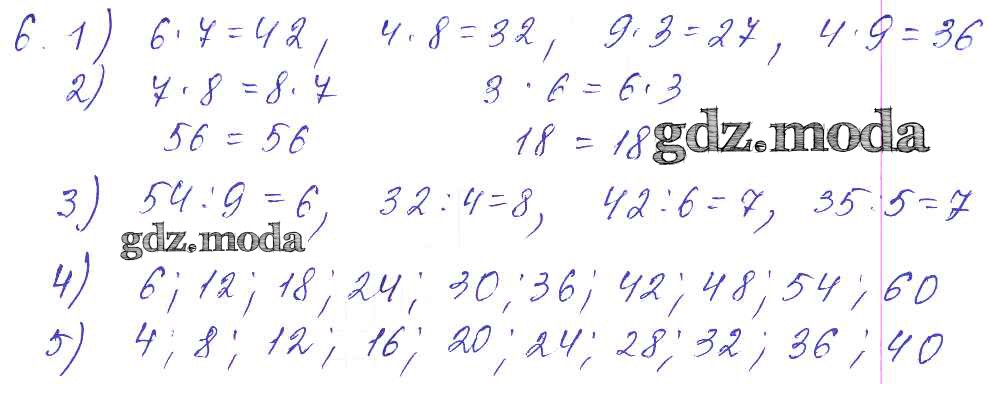 6. 1) 6·7=42, 4·8=32, 9·3=27, 4·9=36
2) 7·8=8·7 3·6=6·3
56=56 18=18 gdz.moda
3) 54:9=6, 32:4=8, 42:6=7, 35:5=7
gdz.moda
4) 6; 12; 18; 24; 30; 36; 42; 48; 54; 60
5) 4; 8; 12; 16; 20; 24; 28; 32; 36; 40